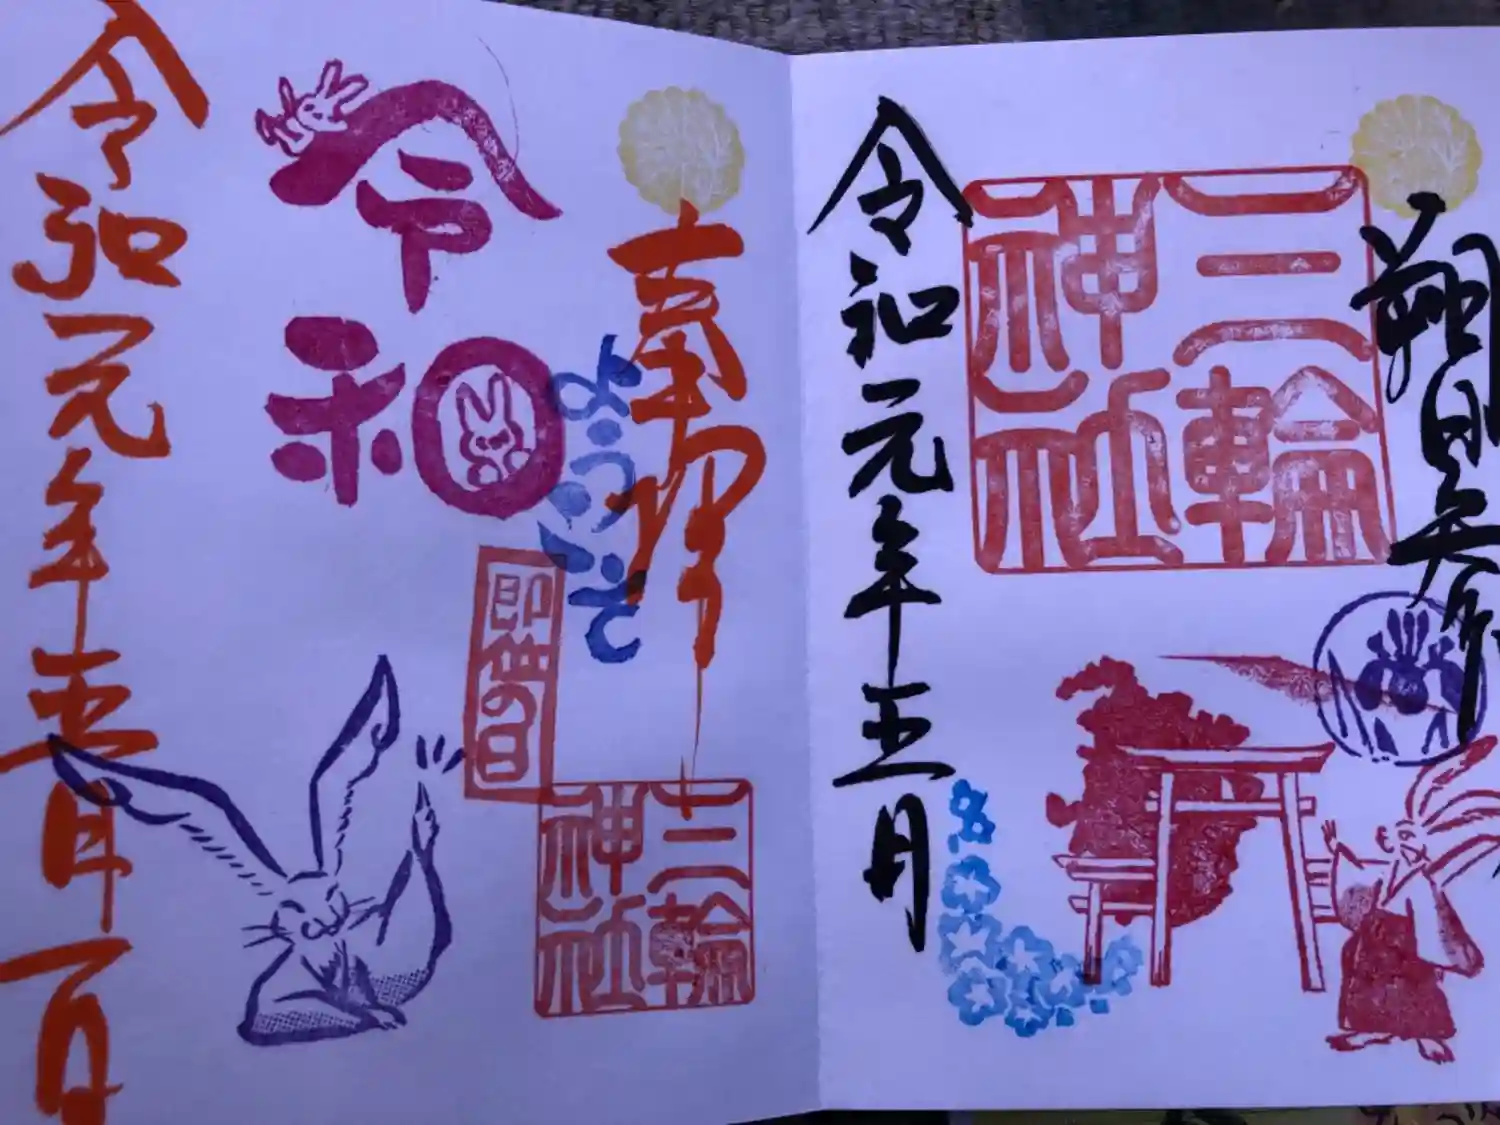 朔日参
三輪
神社
令和元年五月
奉拝
ようこそ
三輪
神社
令和
即位の日
令和元年五月一日